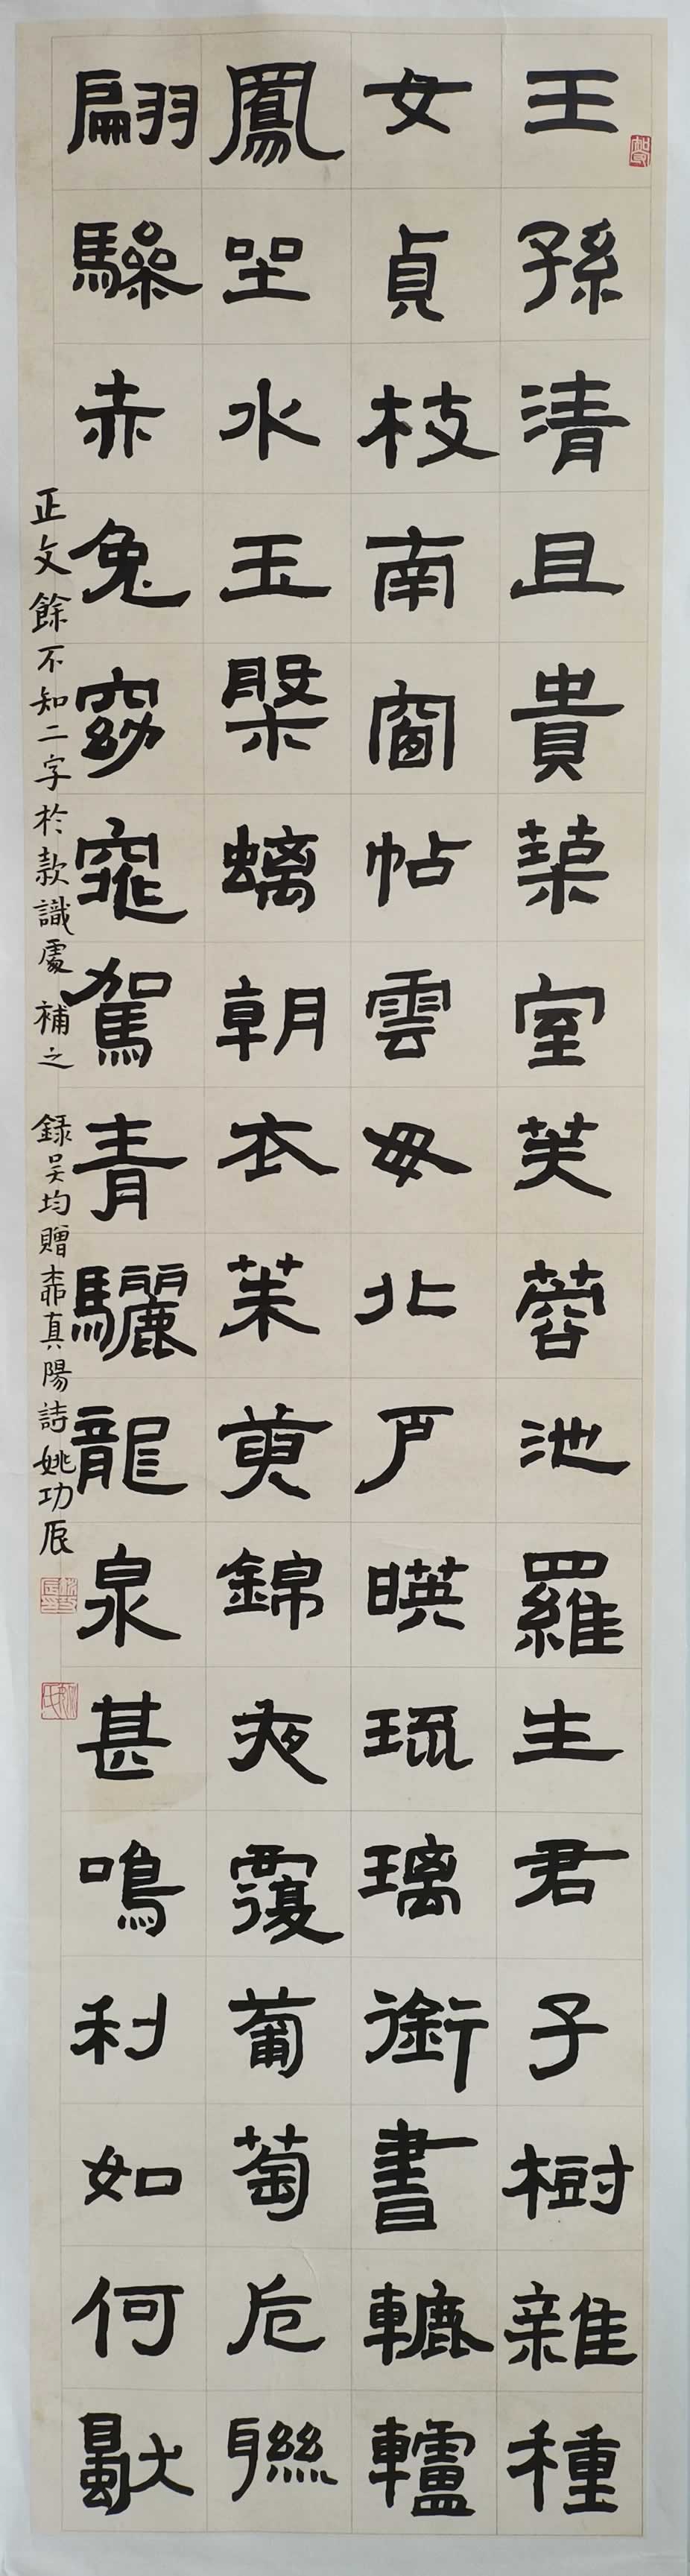 王孫清且貴築室芙蓉池羅生君子樹雜種
女貞枝南窗帖雲母北戶暎琉璃銜書轆轤
鳳坐水玉槃螭朝衣茱萸錦夜覆葡萄卮聯
翩驂赤兔窈窕駕青驪龍泉甚鳴利如何獨
正文餘不知二字於款識處補之 錄吳均贈柳真陽詩姚功辰